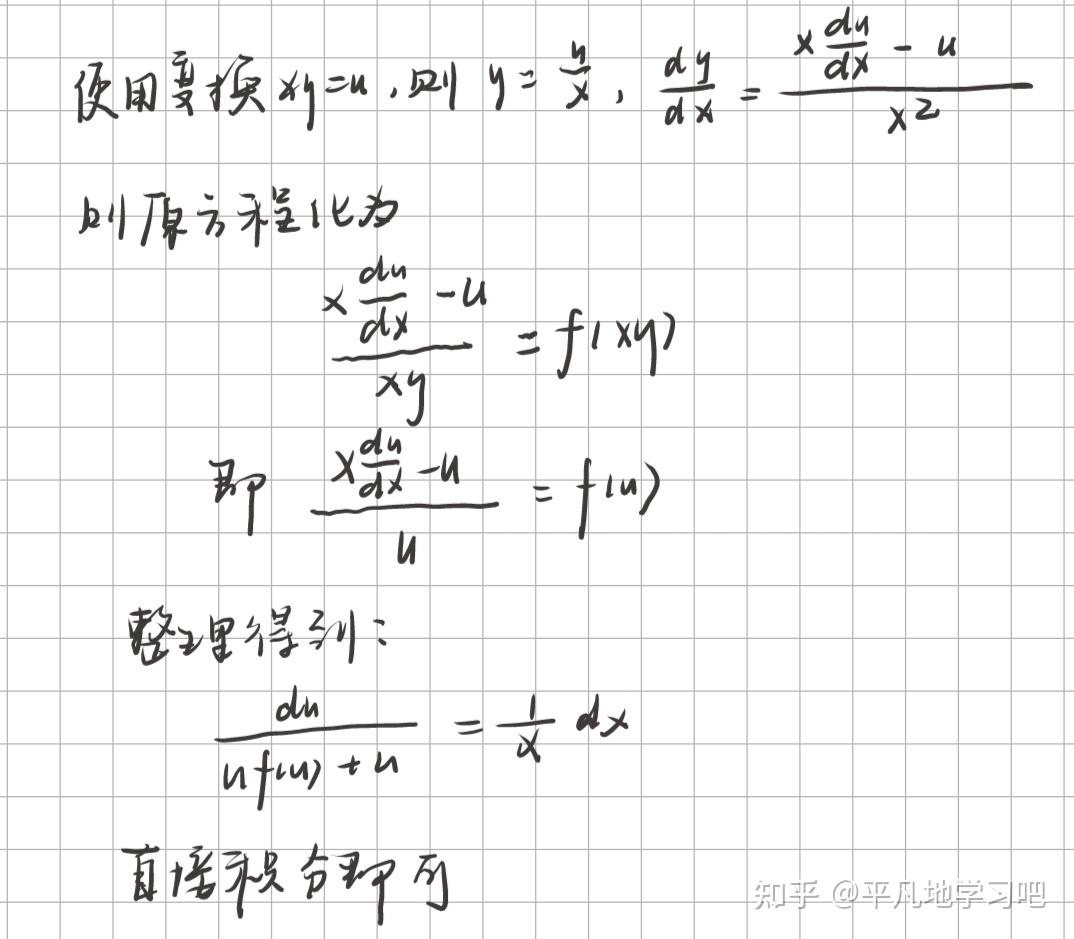 使用变换 xy=u,则 y=u/x, dy/dx = (x du/dx - u)/x²
则原方程化为
(x du/dx - u)/(xy) = f(xy)
即 (x du/dx - u)/u = f(u)
整理得到:
du/(uf(u)+u) = 1/x dx
直接积分即可
知乎 @平凡地学习吧